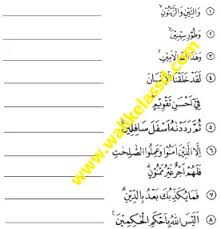 ١ وَالتِّيْنِ وَالزَّيْتُوْنِۙ
٢ وَطُوْرِ سِيْنِيْنَۙ
٣ وَهٰذَا الْبَلَدِ الْاَمِيْنِۙ
٤ لَقَدْ خَلَقْنَا الْاِنْسَانَ
فِيْٓ اَحْسَنِ تَقْوِيْمٍۖ
٥ ثُمَّ رَدَدْنٰهُ اَسْفَلَ سَافِلِيْنَۙ
٦ اِلَّا الَّذِيْنَ اٰمَنُوْا وَعَمِلُوا الصّٰلِحٰتِ
فَلَهُمْ اَجْرٌ غَيْرُ مَمْنُوْنٍۗ
٧ فَمَا يُكَذِّبُكَ بَعْدُ بِالدِّيْنِۗ
٨ اَلَيْسَ اللّٰهُ بِاَحْكَمِ الْحٰكِمِيْنَ